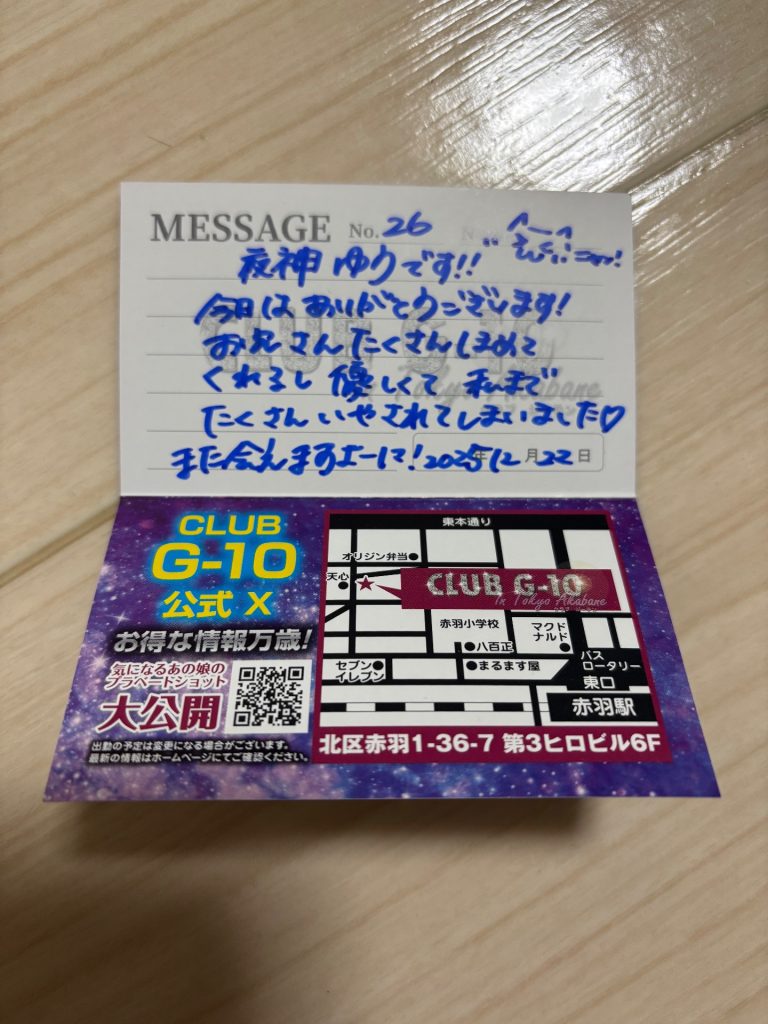 MESSAGE No. 26
夜神ゆりです!!
今日はありがとうございます!
お兄さんたくさんほめて
くれるし優しくて 私まで
たくさんいやされてしまいました♡
また会えますよーに! 2025 12月 22日
CLUB
G-10
公式 X
お得な情報万歳!
気になるあの娘の
プラベートショット
大公開
出勤の予定は変更になる場合がございます。
最新の情報はホームページにてご確認ください。
東本通り
オリジン弁当
天心
CLUB G-10
In Tokyo Akabane
赤羽小学校
マクド
ナルド
八百正
バス
ロータリー
セブン
イレブン
まるます屋
東口
赤羽駅
北区赤羽1-36-7 第3ヒロビル6F